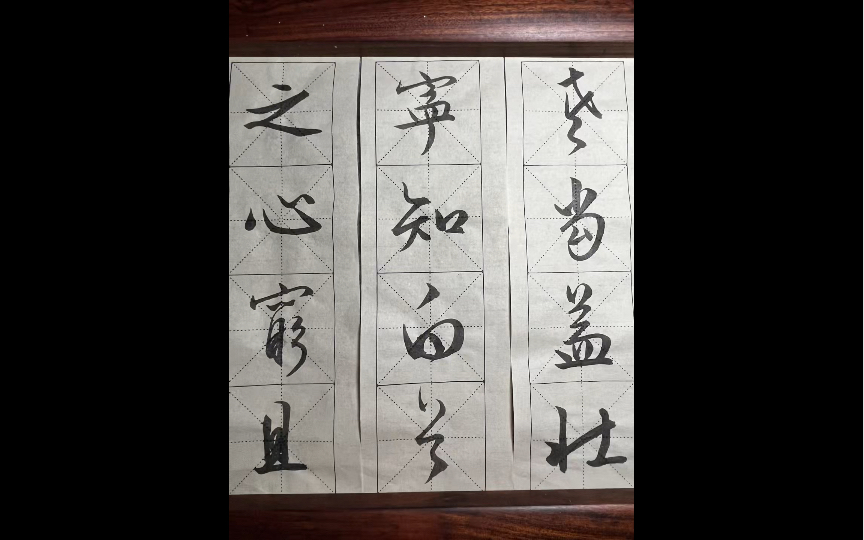 老当益壮
寧知白首
之心窮且